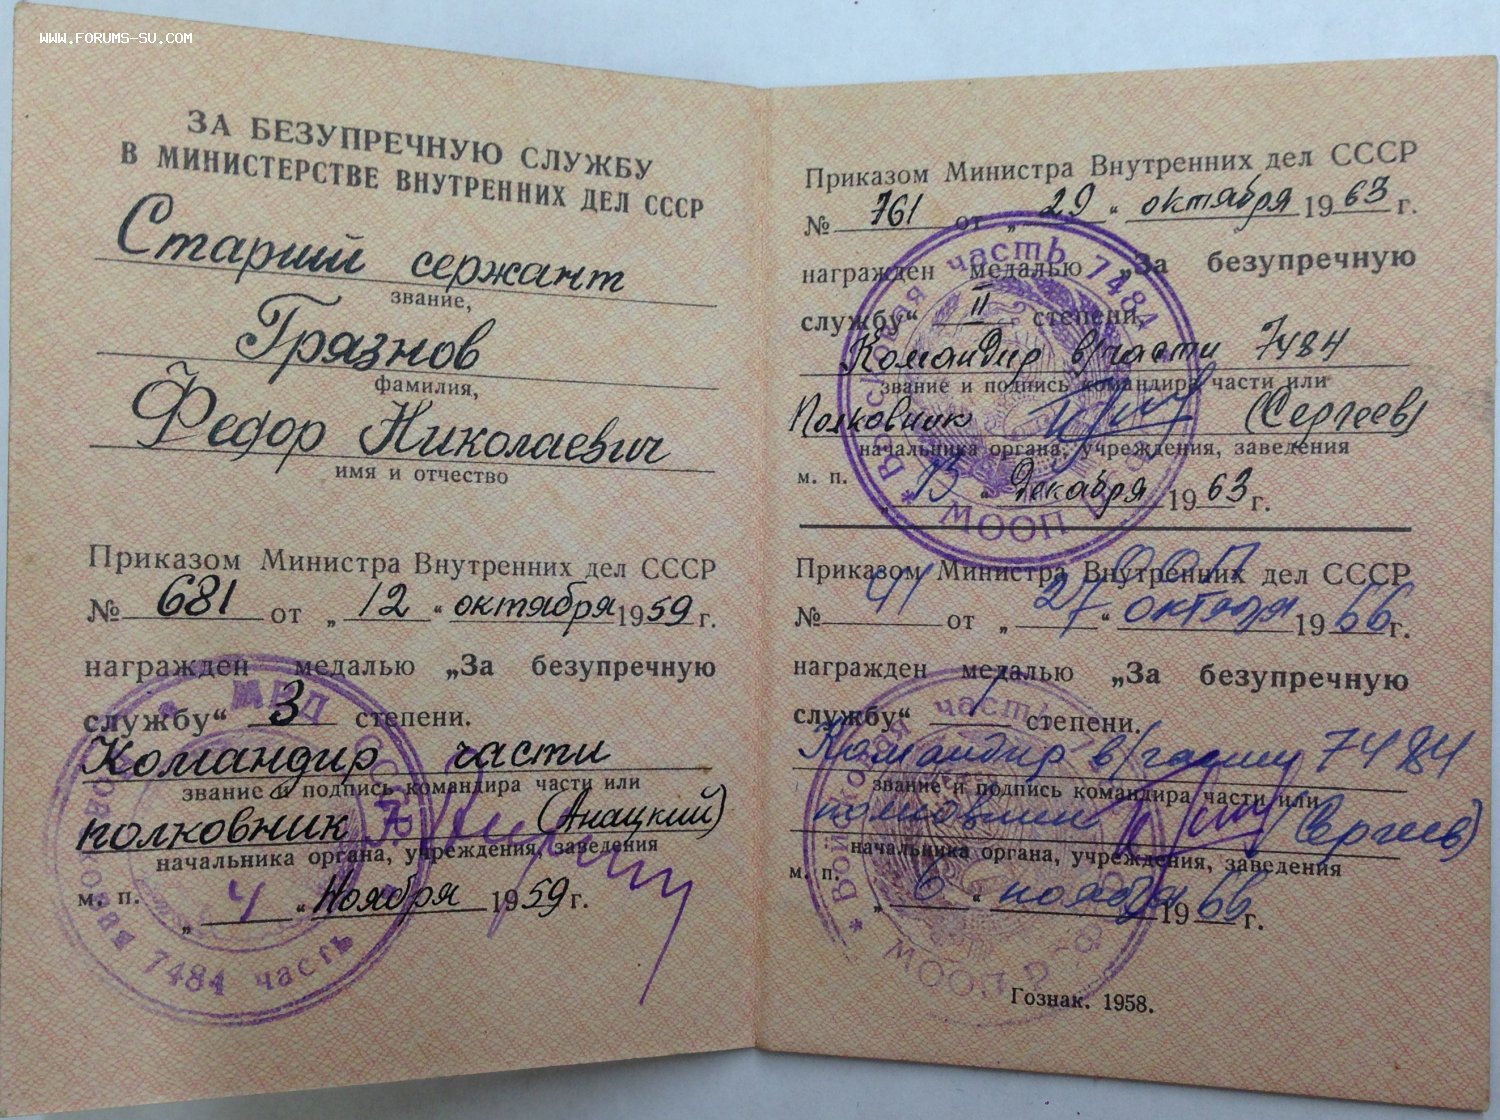 WWW.FORUMS-SU.COM
ЗА БЕЗУПРЕЧНУЮ СЛУЖБУ
В МИНИСТЕРСТВЕ ВНУТРЕННИХ ДЕЛ СССР
Старший сержант
звание,
Грязнов
фамилия,
Федор Николаевич
имя и отчество
Приказом Министра Внутренних дел СССР
№ 681 от „ 12 “ октября 1959 г.
награжден медалью „За безупречную
службу“ 3 степени.
Командир части
звание и подпись командира части или
полковник (Анацкий)
начальника органа, учреждения, заведения
м. п.
„ 4 “ Ноября 1959 г.
МВД СССР
7484 часть
Приказом Министра Внутренних дел СССР
№ 761 от „ 29 “ октября 1963 г.
награжден медалью „За безупречную
службу“ II степени.
Командир в/части 7484
звание и подпись командира части или
Полковник (Сергеев)
начальника органа, учреждения, заведения
м. п.
„ 13 “ Декабря 1963 г.
* Войсковая часть 7484
МООП
Приказом Министра Внутренних дел СССР
ООП
№ 41 от „ 27 “ октября 1966 г.
награжден медалью „За безупречную
службу“ 1 степени.
Командир в/части 7484
звание и подпись командира части или
полковник (Сергеев)
начальника органа, учреждения, заведения
м. п.
„ 6 “ ноября 1966 г.
* Войсковая часть
МООП
Гознак. 1958.